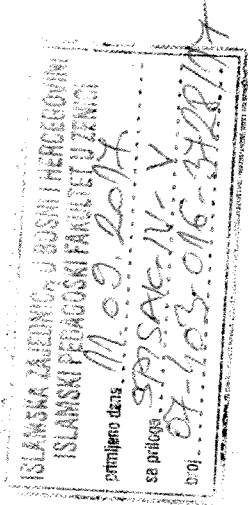 ISLAMSKA ZAJEDNICA U BOSNI I HERCEGOVINI
ISLAMSKI PEDAGOŠKI FAKULTET U ZENICI
primljeno dana 11.09.2017
sa priloga SPISAK-IV-V
broj 07-403-016-3728/17